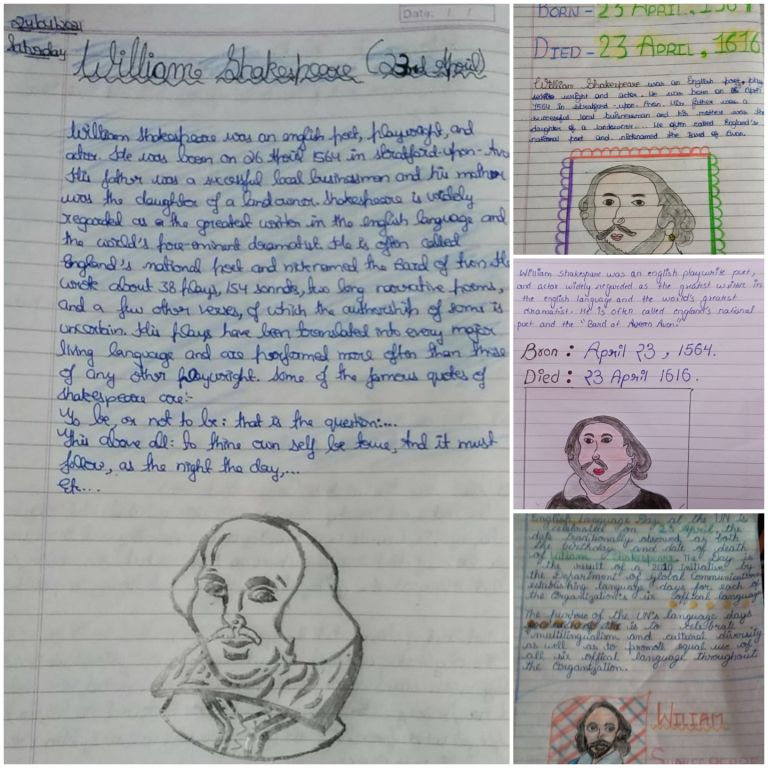 Date: / /
Saturday
William Shakespeare (23rd April)
William Shakespeare was an english poet, playwright, and
actor. He was boorn on 26 April 1564 in stratford-upon-Avo
His father was a sucessful local businessman and his mother
was the daughter of a landowner. Shakespeare is widely
regarded as the greatest writer in the english language and
the world's pre-eminent dramatist. He is often called
England's national poet and nicknamed the Bard of Avon. He
wrote about 38 plays, 154 sonnets, two long narrative poems,
and a few other verses, of which the authorship of some is
uncertain. His plays have been translated into every major
living language and are performed more often than those
of any other playwright. Some of the famous quotes of
shakespeare are:-
To be, or not to be: that is the question:...
This above all: to thine own self be true, And it must
follow, as the night the day,...
Etc...
BORN - 23 APRIL,
DIED - 23 APRIL, 1616
William Shakespeare was an English poet, play
wright and actor. He was born on 26 April
1564 in stratford-upon-Avon. His father was a
successful local businessman and his mother was the
daughter of a landowner. He often called England's
national poet and nicknamed the Bard of Avon.
William Shakespare was an english playwrite poet,
and actor widely regarded as the greatest writer in
the english language and the world's greatest
dramatist. He is often called england's national
poet and the "Bard of Avon"
Bron : April 23, 1564.
Died : 23 April 1616.
English Language Day at the UN is
celebrated on 23 April, the
date traditionally observed as both
the birthday and date of death
of William Shakespeare. The Day is
the result of a 2010 initiative by
the Department of global Communications
establishing language days for each of
the Organization's six offical language
The purpose of the UN's language days
is to celebrate
multilingualism and cultural diversity
as well as to promote equal use of
all six offical language throughout
the Organization.
WILIAM
SHAKESPEARE